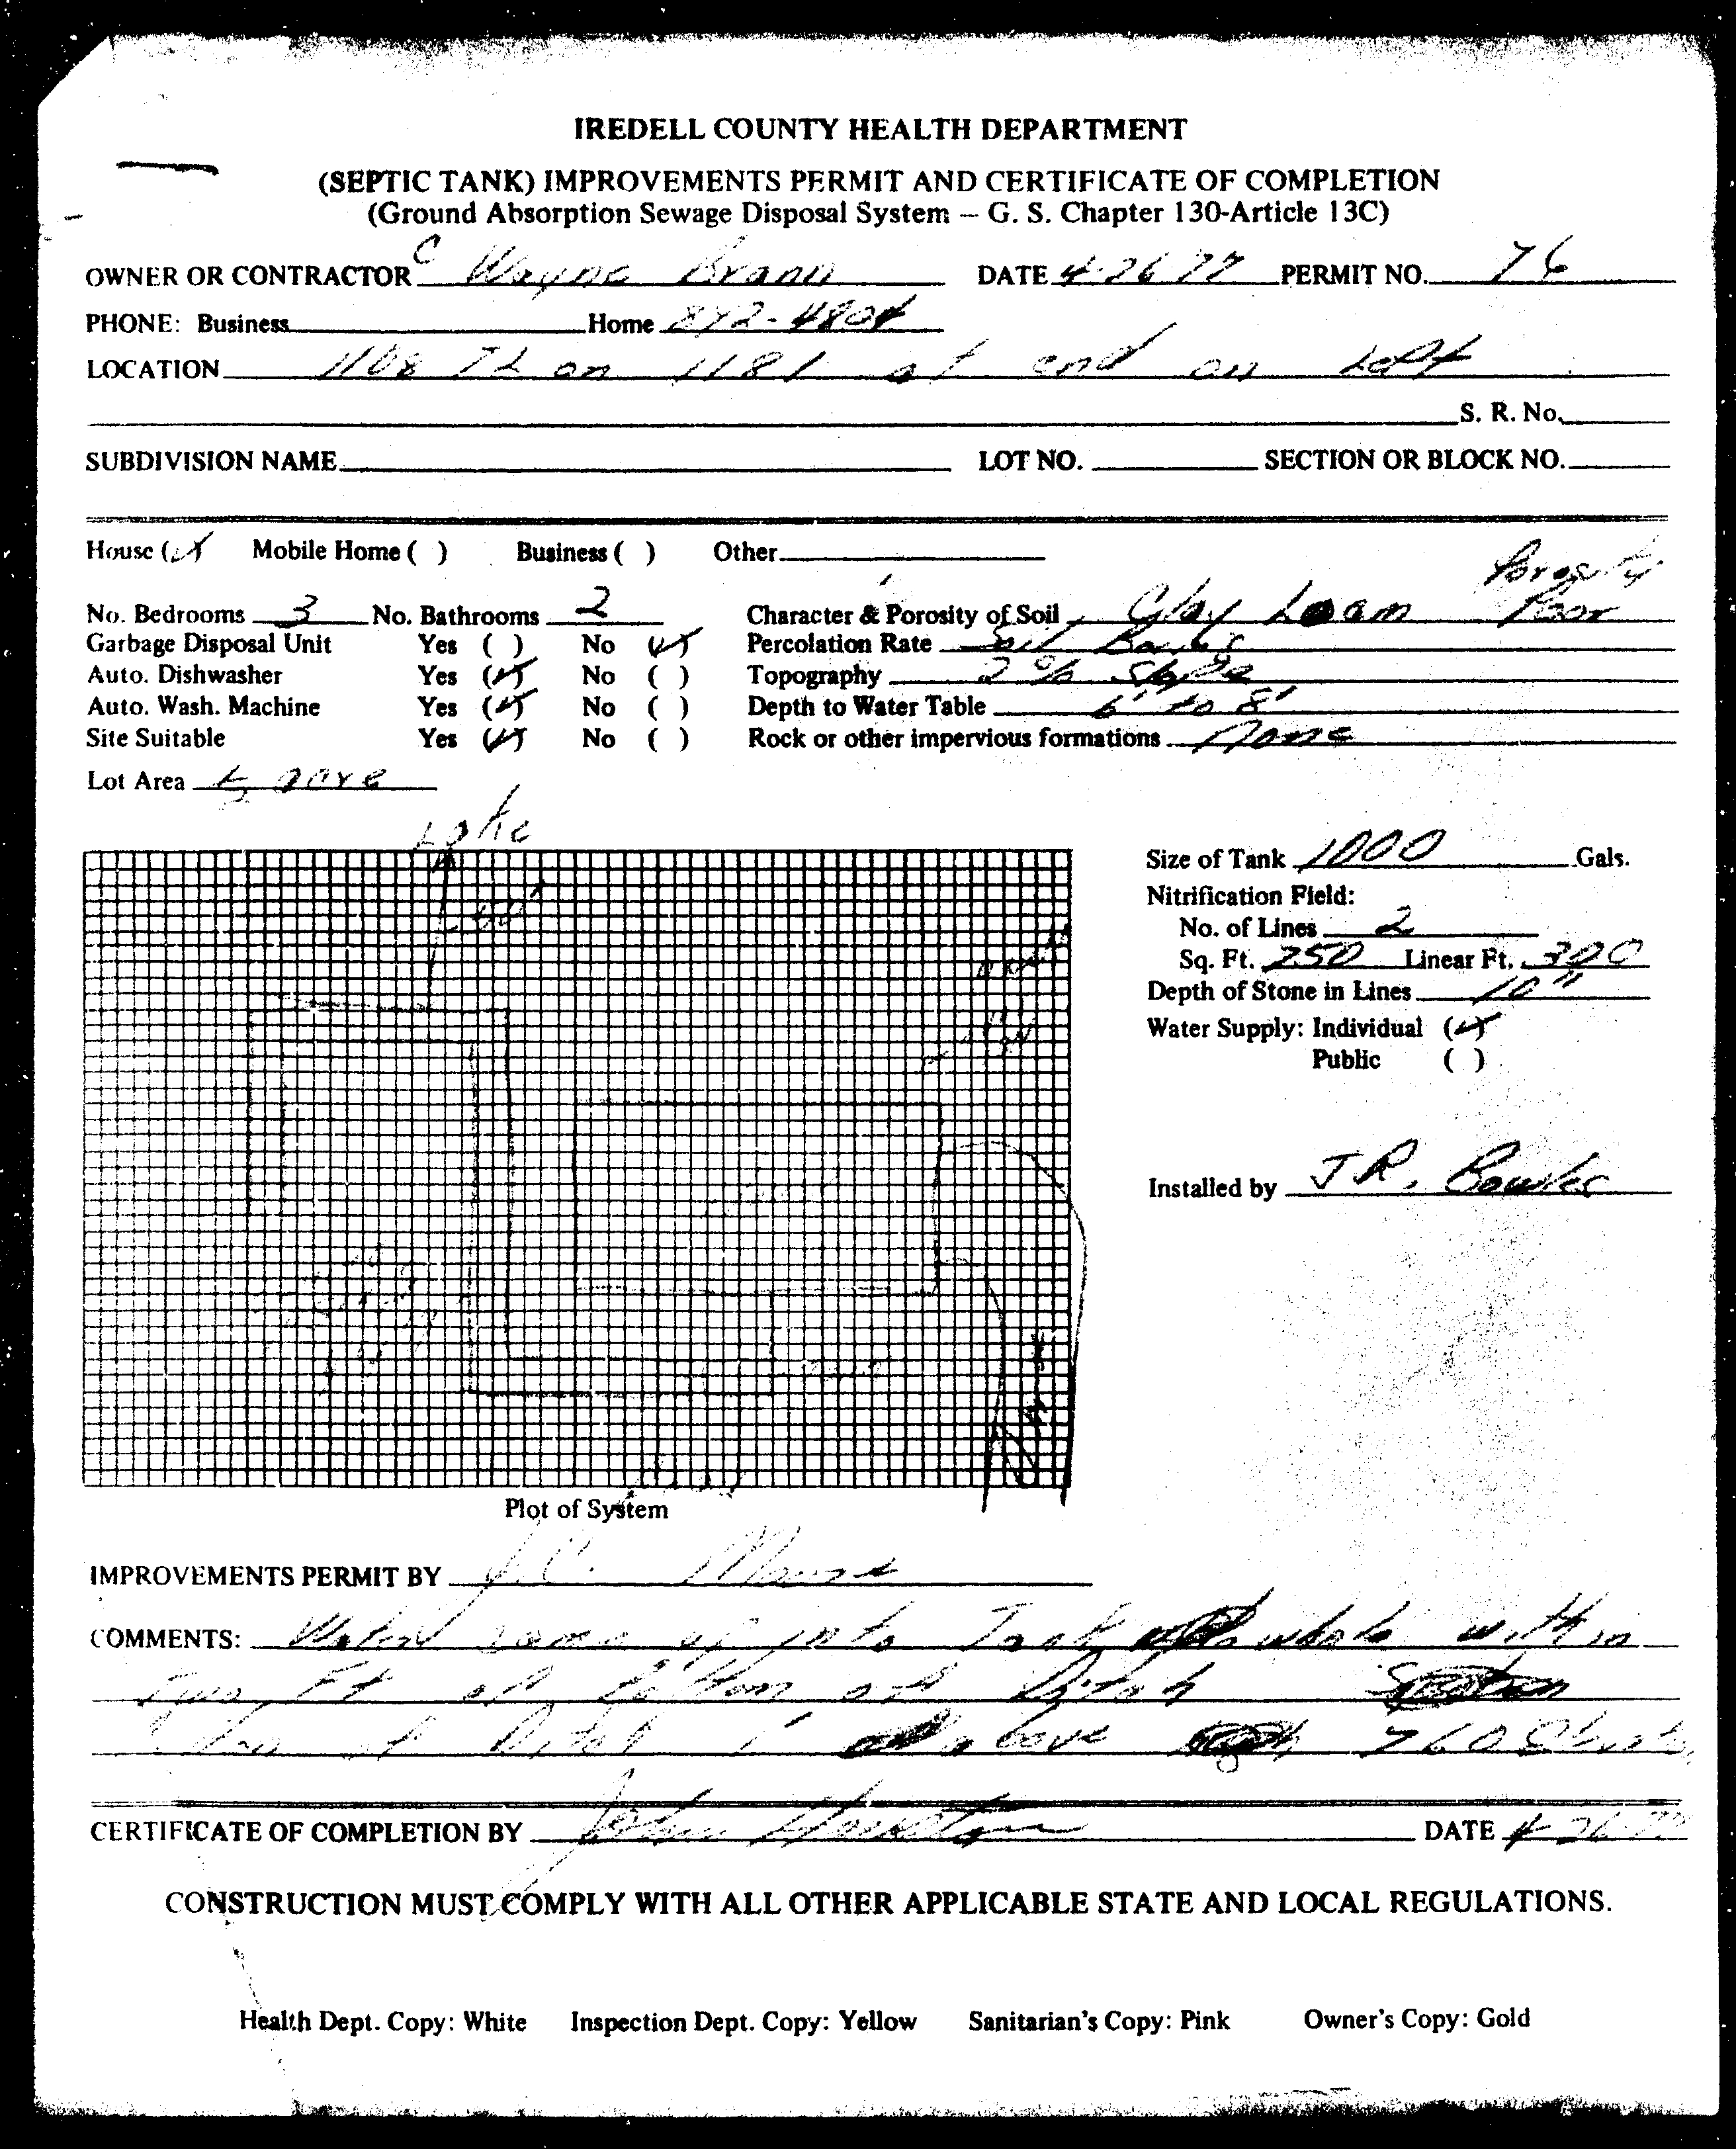 IREDELL COUNTY HEALTH DEPARTMENT
(SEPTIC TANK) IMPROVEMENTS PERMIT AND CERTIFICATE OF COMPLETION
(Ground Absorption Sewage Disposal System — G. S. Chapter 130-Article 13C)
OWNER OR CONTRACTOR C Wayne Brann DATE 4-26 77 PERMIT NO. 76
PHONE: Business Home 872-4804
LOCATION 1108 TL on 1181 at end on Left
S. R. No.
SUBDIVISION NAME LOT NO. SECTION OR BLOCK NO.
House (✓) Mobile Home ( ) Business ( ) Other
Porosity
No. Bedrooms 3 No. Bathrooms 2 Character & Porosity of Soil Clay Loam Poor
Garbage Disposal Unit Yes ( ) No (✓) Percolation Rate Soil
Auto. Dishwasher Yes (✓) No ( ) Topography 2 % Slope
Auto. Wash. Machine Yes (✓) No ( ) Depth to Water Table 6' to 8'
Site Suitable Yes (✓) No ( ) Rock or other impervious formations None
Lot Area acre
Lake
Size of Tank 1000 Gals.
Nitrification Field:
No. of Lines 2
Sq. Ft. 750 Linear Ft. 300
Depth of Stone in Lines 10"
Water Supply: Individual (✓)
Public ( )
Installed by J.R. Bowles
Plot of System
IMPROVEMENTS PERMIT BY J.C.
COMMENTS: Water came up into Tank within
Two Ft of bottom of Ditch
of Ditch 1' above 760
CERTIFICATE OF COMPLETION BY John DATE 4-26-77
CONSTRUCTION MUST COMPLY WITH ALL OTHER APPLICABLE STATE AND LOCAL REGULATIONS.
Health Dept. Copy: White Inspection Dept. Copy: Yellow Sanitarian's Copy: Pink Owner's Copy: Gold